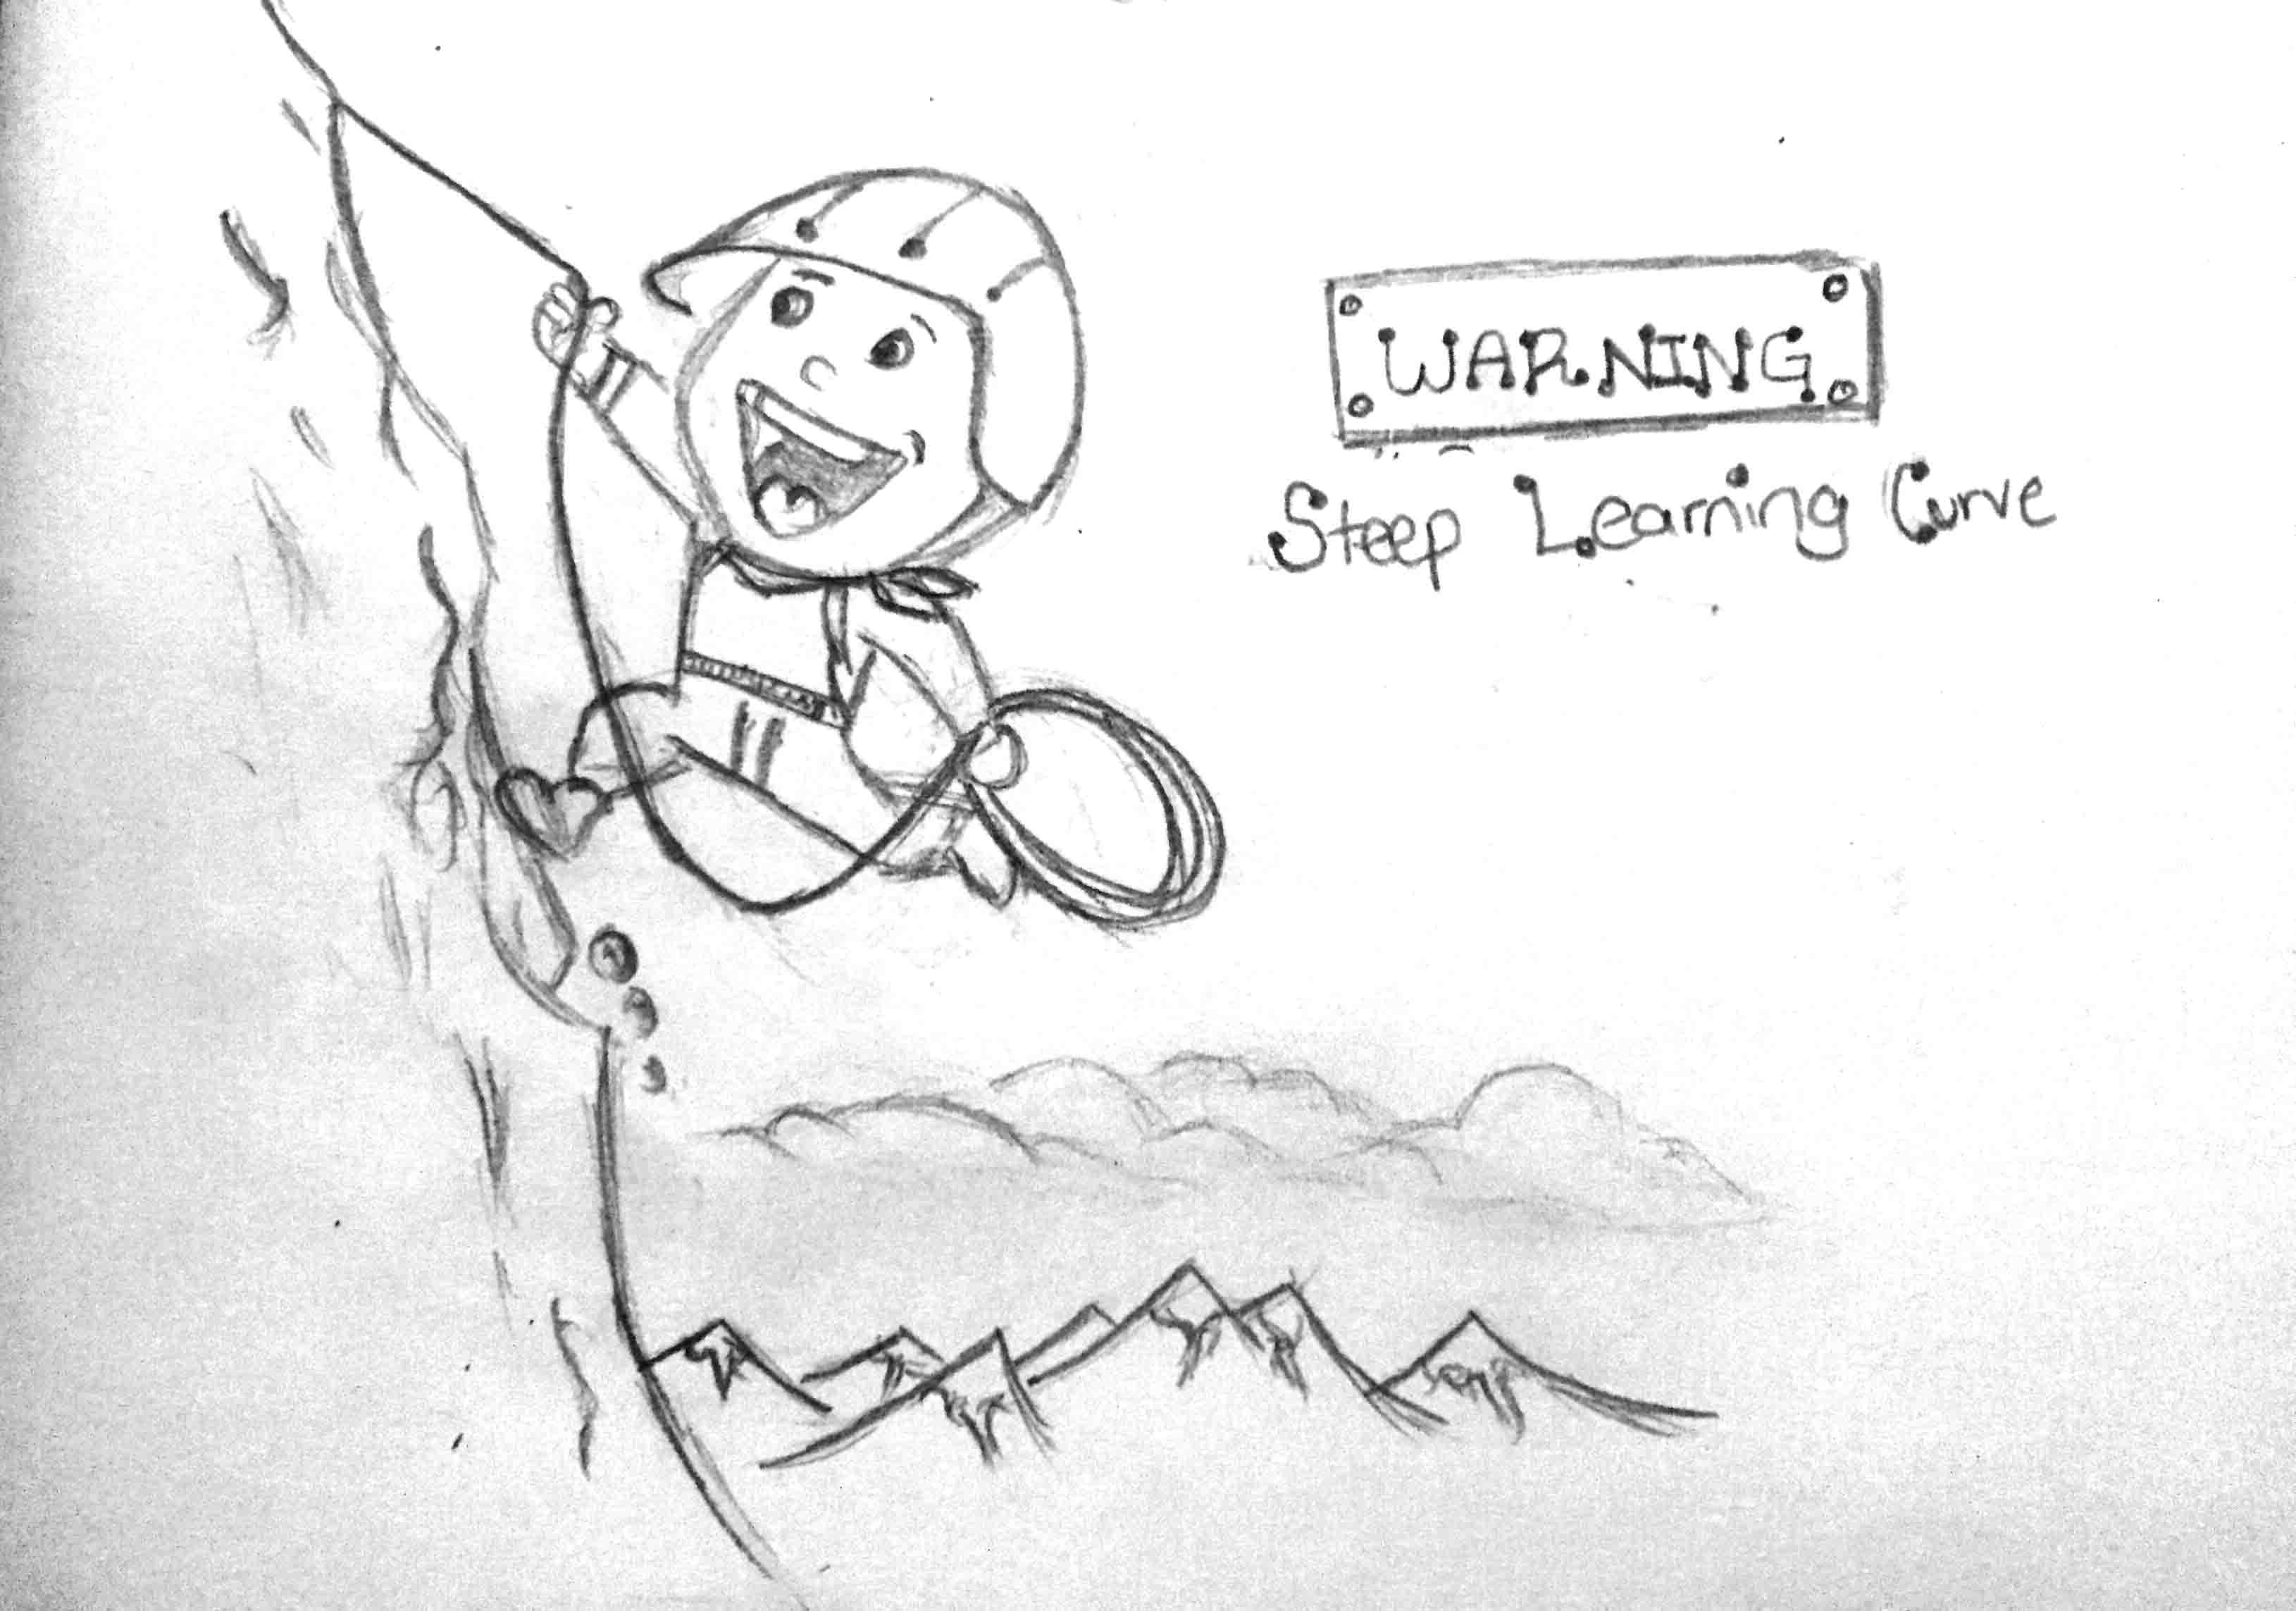 WARNING
Steep Learning Curve